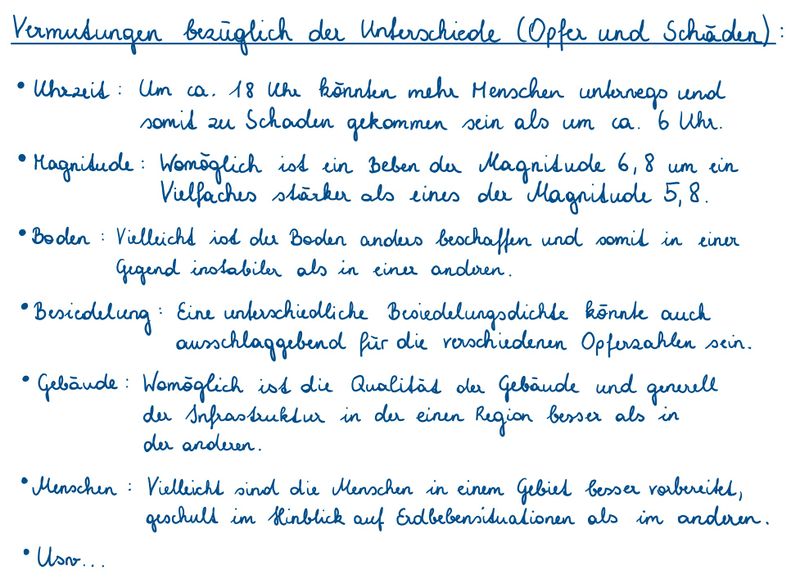 Vermutungen bezüglich der Unterschiede (Opfer und Schäden):
• Uhrzeit: Um ca. 18 Uhr könnten mehr Menschen unterwegs und
somit zu Schaden gekommen sein als um ca. 6 Uhr.
• Magnitude: Womöglich ist ein Beben der Magnitude 6,8 um ein
Vielfaches stärker als eines der Magnitude 5,8.
• Boden: Vielleicht ist der Boden anders beschaffen und somit in einer
Gegend instabiler als in einer anderen.
• Besiedelung: Eine unterschiedliche Besiedelungsdichte könnte auch
ausschlaggebend für die verschiedenen Opferzahlen sein.
• Gebäude: Womöglich ist die Qualität der Gebäude und generell
der Infrastruktur in der einen Region besser als in
der anderen.
• Menschen: Vielleicht sind die Menschen in einem Gebiet besser vorbereitet,
geschult im Hinblick auf Erdbebensituationen als im anderen.
• Usw...